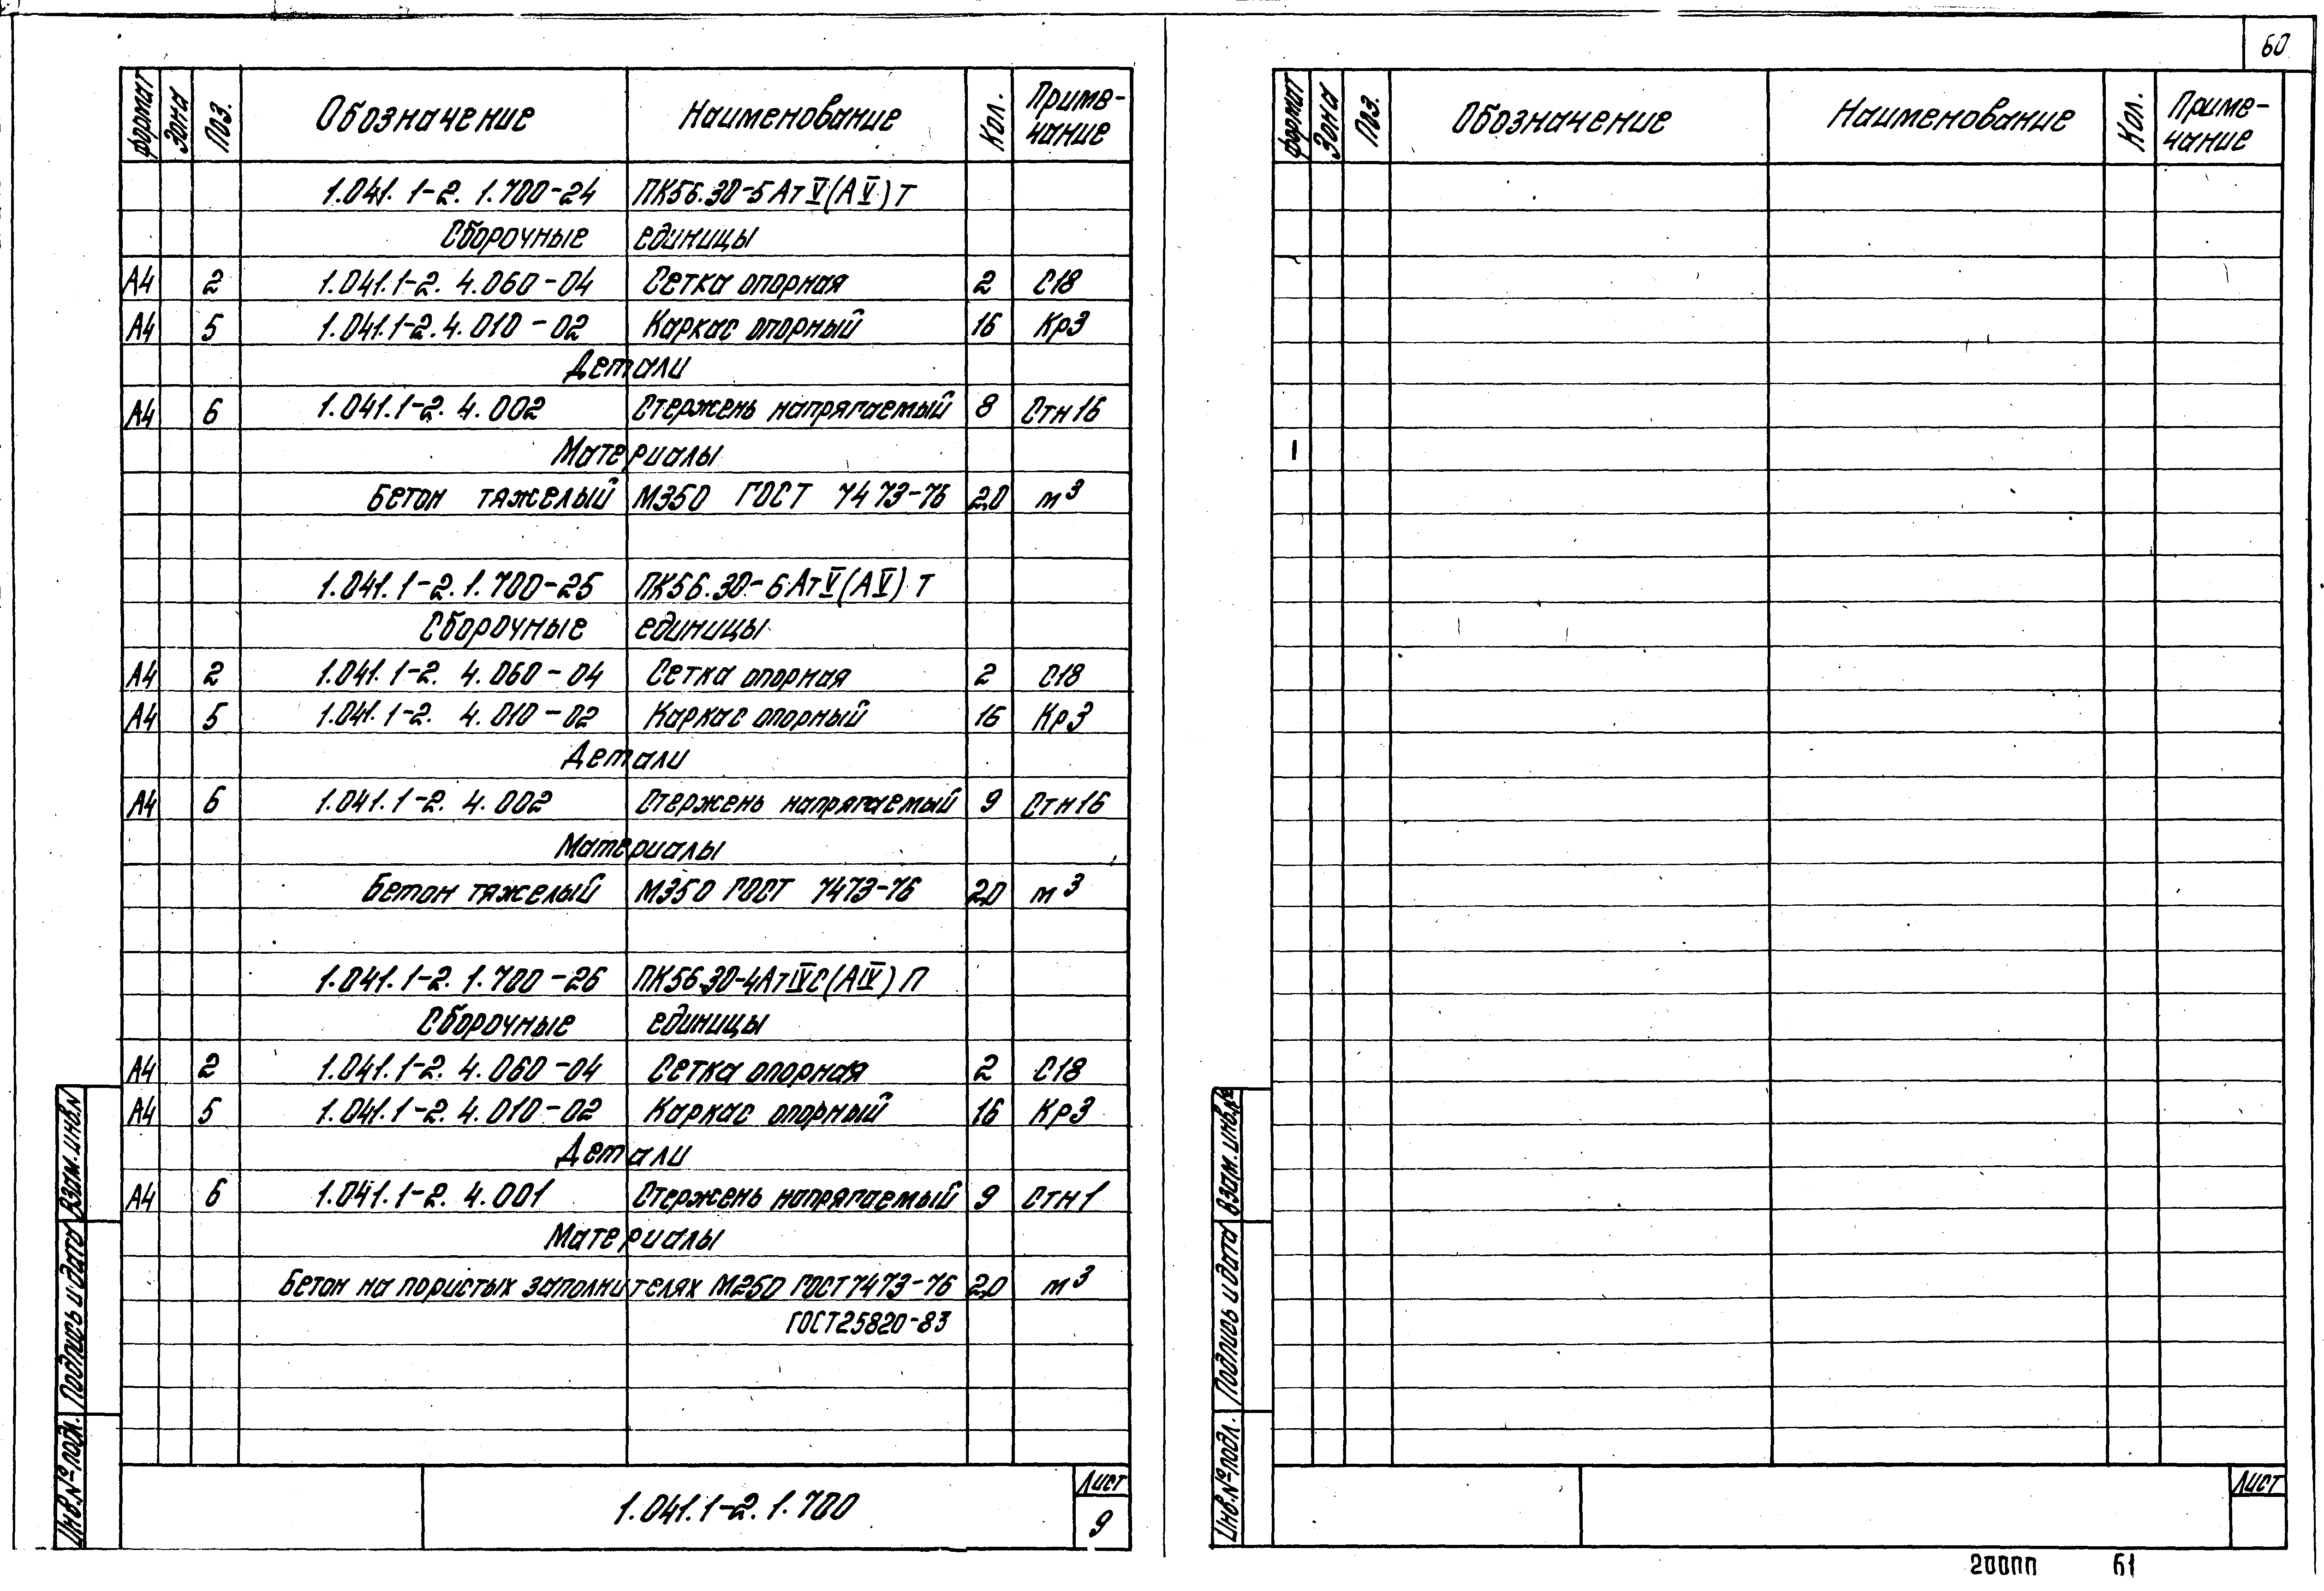 60
формат Зона Поз. Обозначение Наименование Кол. Приме-
чание
1.041.1-2.1.700-24 ПК56.30-5АтV(АV)Т
Сборочные единицы
А4 2 1.041.1-2.4.060-04 Сетка опорная 2 С18
А4 5 1.041.1-2.4.010-02 Каркас опорный 16 Кр3
Детали
А4 6 1.041.1-2.4.002 Стержень напрягаемый 8 Стн16
Материалы
Бетон тяжелый М350 ГОСТ 7473-76 2,0 м³
1.041.1-2.1.700-25 ПК56.30-6АтV(АV)Т
Сборочные единицы
А4 2 1.041.1-2.4.060-04 Сетка опорная 2 С18
А4 5 1.041.1-2.4.010-02 Каркас опорный 16 Кр3
Детали
А4 6 1.041.1-2.4.002 Стержень напрягаемый 9 Стн16
Материалы
Бетон тяжелый М350 ГОСТ 7473-76 2,0 м³
1.041.1-2.1.700-26 ПК56.30-4АтIVС(АIV)П
Сборочные единицы
А4 2 1.041.1-2.4.060-04 Сетка опорная 2 С18
А4 5 1.041.1-2.4.010-02 Каркас опорный 16 Кр3
Детали
А4 6 1.041.1-2.4.001 Стержень напрягаемый 9 Стн1
Материалы
Бетон на пористых заполнителях М250 ГОСТ7473-76 2,0 м³
ГОСТ25820-83
Инв.№подл. Подпись и дата Взам.инв.N
1.041.1-2.1.700
Лист
9
формат Зона Поз. Обозначение Наименование Кол. Приме-
чание
Инв.№подл. Подпись и дата Взам.инв.№
Лист
20000 61